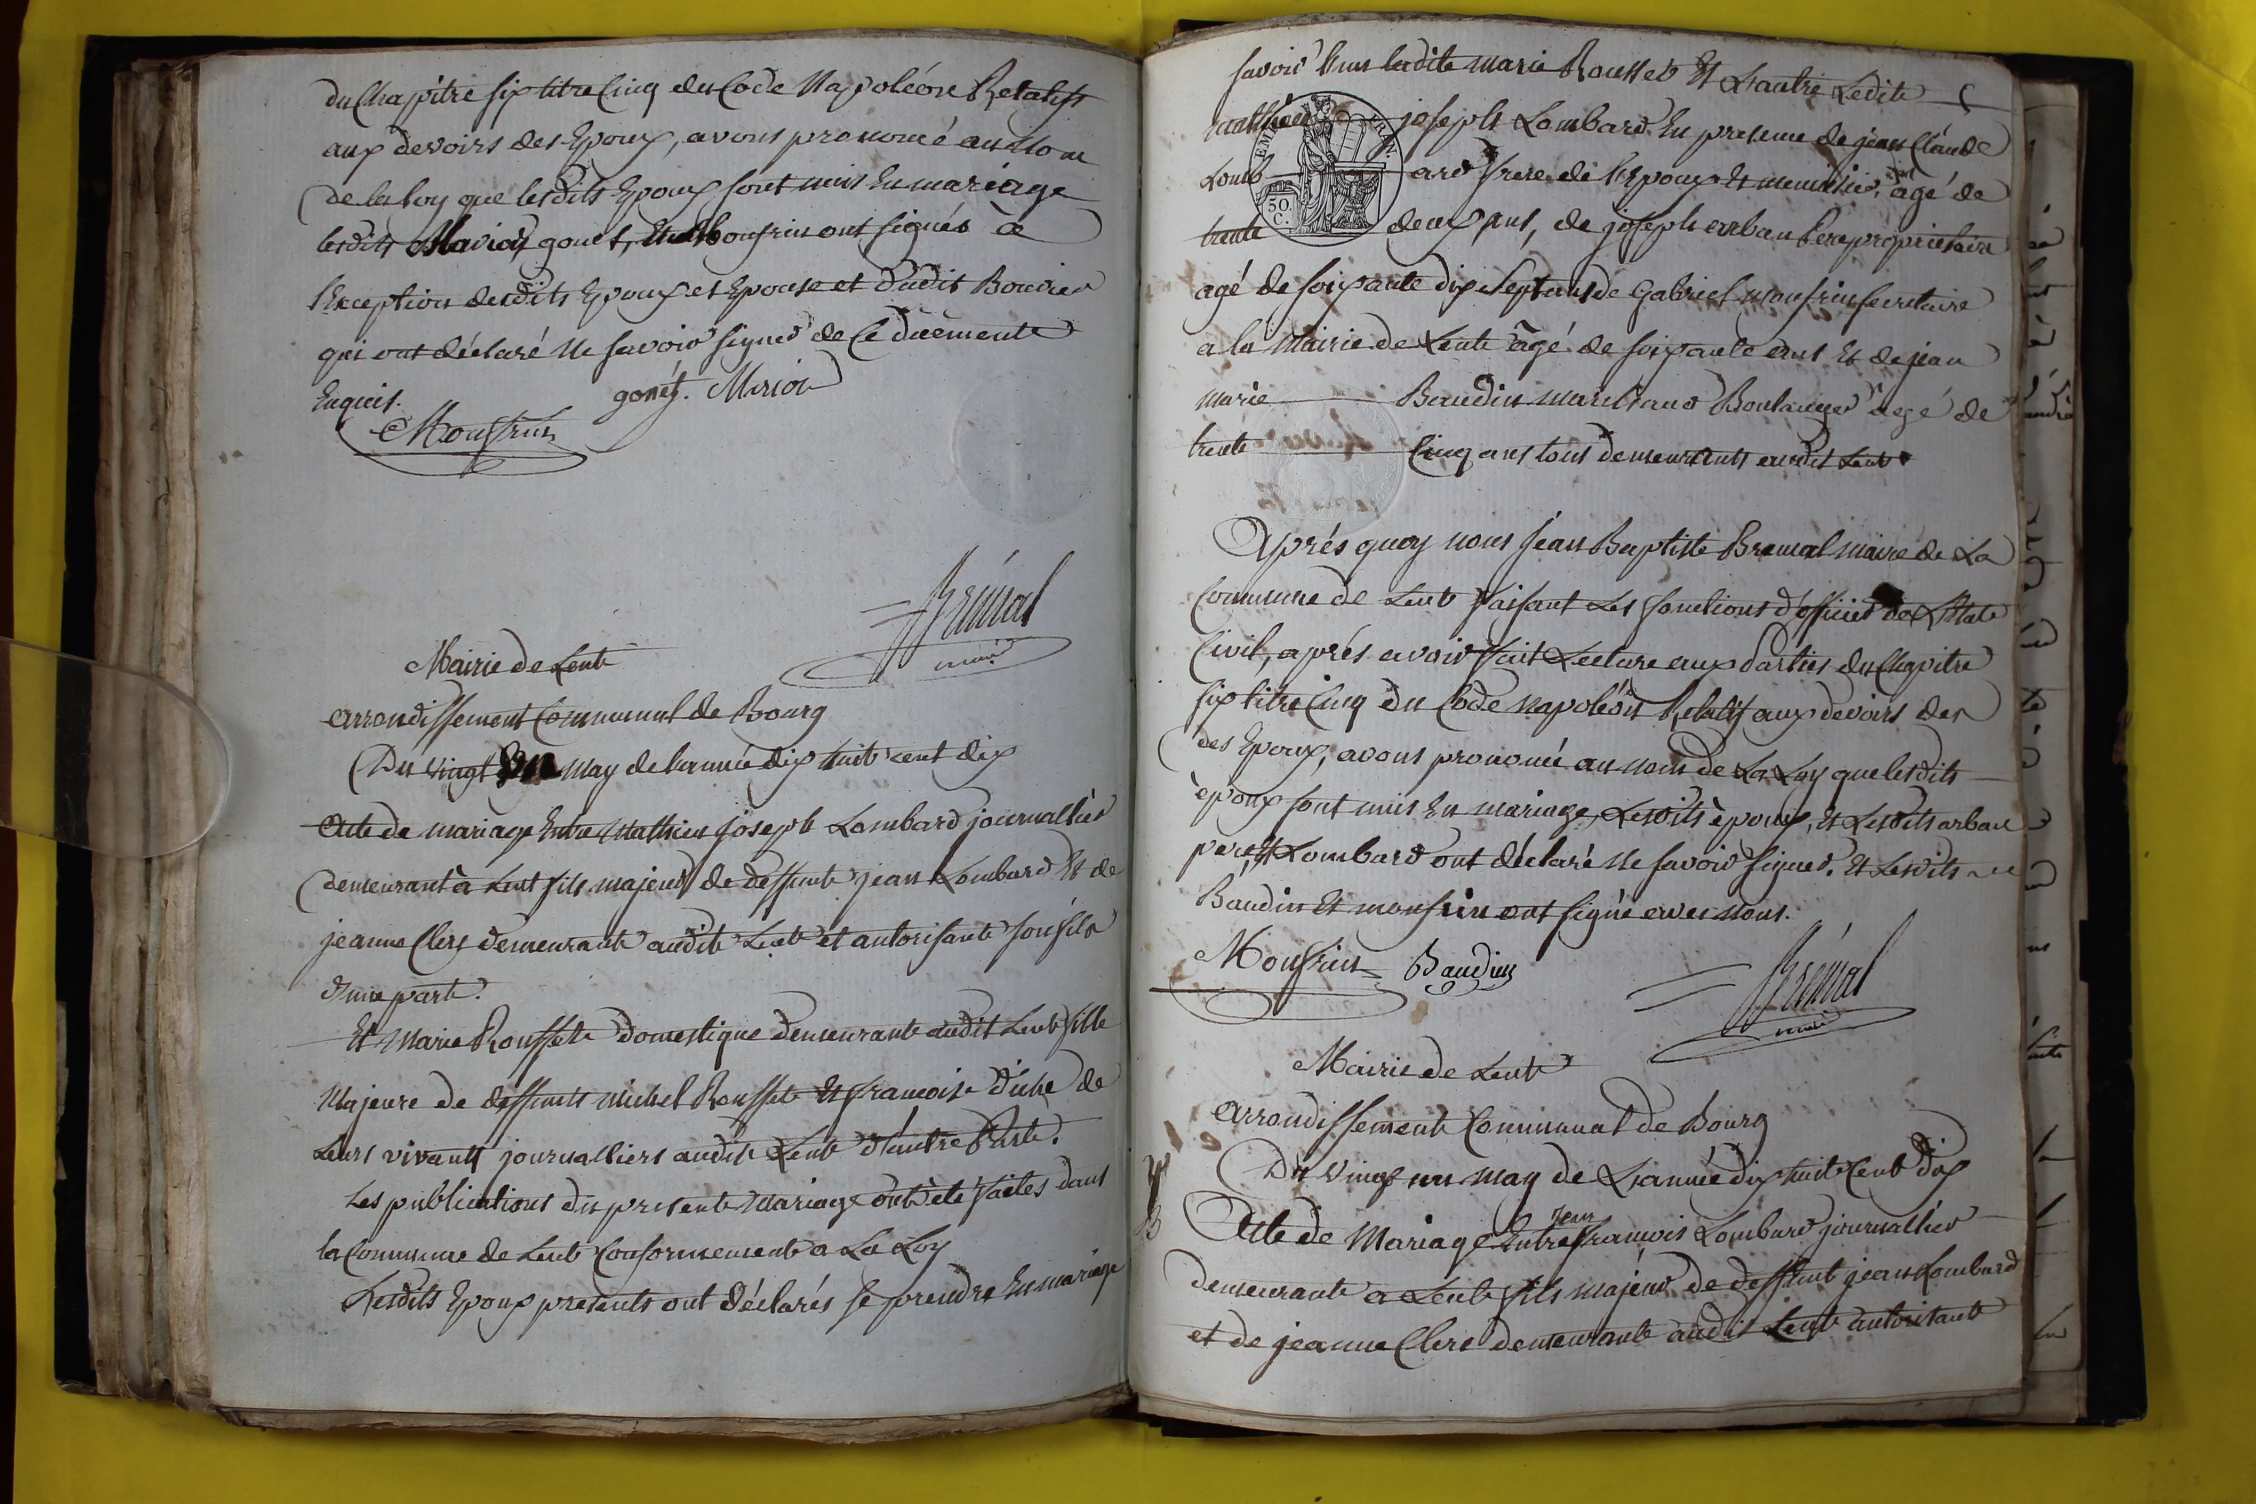 du Chapitre six titre Cinq du Code Napoléon Relatif
aux devoirs des Epoux, avons prononcé au nom
de la loy que lesdits Epoux sont unis En mariage
lesdits Marion gonet, et Monfrin ont signés à
l'Exception desdits Epoux et Epouse et dudit Bouvier
qui ont déclaré ne savoir signer de Ce duement
Enquis.
gonet. Marion
Monfrin
Brémal
maire
Mairie de Lent
arrondissement Communal de Bourg
Du vingt un May de l'année dix huit cent dix
Acte de mariage Entre Mathieu joseph Lombard journallier
demeurant à Lent fils majeur de deffunt jean Lombard Et de
jeanne Clerc demeurante audit Lent et autorisante son fils
d'une part.
Et Marie Rousset domestique demeurante audit Lent fille
Majeure de deffunts michel Rousset Et francoise de
Leurs vivants journalliers audit Lent d'autre Part.
Les publications du present Mariage ont été faites dans
la Commune de Lent Conformement a La Loy
Lesdits Epoux presents ont déclarés se prendre En mariage
savoir l'un ladite marie Rousset Et L'autre Ledit
mathieu joseph Lombard En presence de jean Claude
Lombard frere de l'Epoux Et menusier, agé de
trente deux ans, de joseph arban Pere proprietaire
agé de soixante dix sept ans de Gabriel monfrin secretaire
a la Mairie de Lent agé de soixante ans Et de jean
marie Baudin marchand Boulanger agé de
trente Cinq ans tous demeurants audit Lent
EMP FRAN.
50.
C.
Après quoy nous Jean Baptiste Bremal maire de La
Commune de Lent faisant Les fonctions d'officier de L'Etat
Civil, après avoir fait Lecture aux Parties du Chapitre
six titre Cinq du Code Napoléon Relatif aux devoirs des
des Epoux, avons prononcé au nom de La Loy que lesdits
époux sont unis En mariage, Lesdits époux, Et Lesdits arban
pere, Et Lombard ont déclaré Ne savoir signer. Et Lesdits
Baudin Et monfrin ont signé avec nous.
Monfrin Baudin
Brémal
maire
Mairie de Lent
arrondissement Communal de Bourg
Du Vingt un May de L'année dix huit Cent dix
jean
Acte de Mariage Entre francois Lombard journallier
demeurante a Lent fils majeur de deffunt jean Lombard
et de jeanne Clerc demeurante audit Lent autorisante